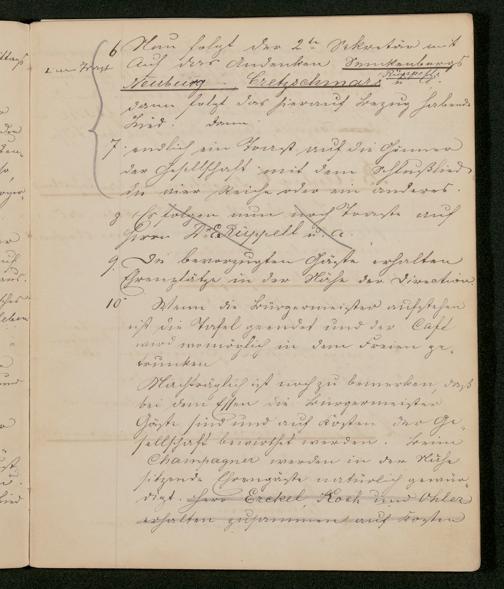 6 Nun folgt der 2te Sekretär mit
Auf das Andenken Senkenbergs
Neuburg – Cretzschmars Rüppells
dann folgt das hierauf Bezug habende
Lied. dann
7. endlich ein Toast auf die Gönner
der Gesellschaft mit dem Schlußlied
In vier Reiche oder ein anderes.
8 Es folgen nun noch Toaste auf
Herrn Dr E. Rüppell u. a
9. Die bevorzugten Gäste erhalten
Ehrenplätze in der Nähe der Direction
10 Wenn die Bürgermeister aufstehen
ist die Tafel geendet und der Café
wird womöglich in dem Freien ge-
trunken
Nachträglich ist noch zu bemerken, daß
bei dem Essen die Bürgermeister
Gäste sind und auf Kosten der Ge-
sellschaft bewirthet werden. Beim
Champagner werden in der Nähe
sitzende Ehrengäste natürlich gewür-
digt. Herr Erckel, Koch und Ohler
erhalten zusammen auf Kosten